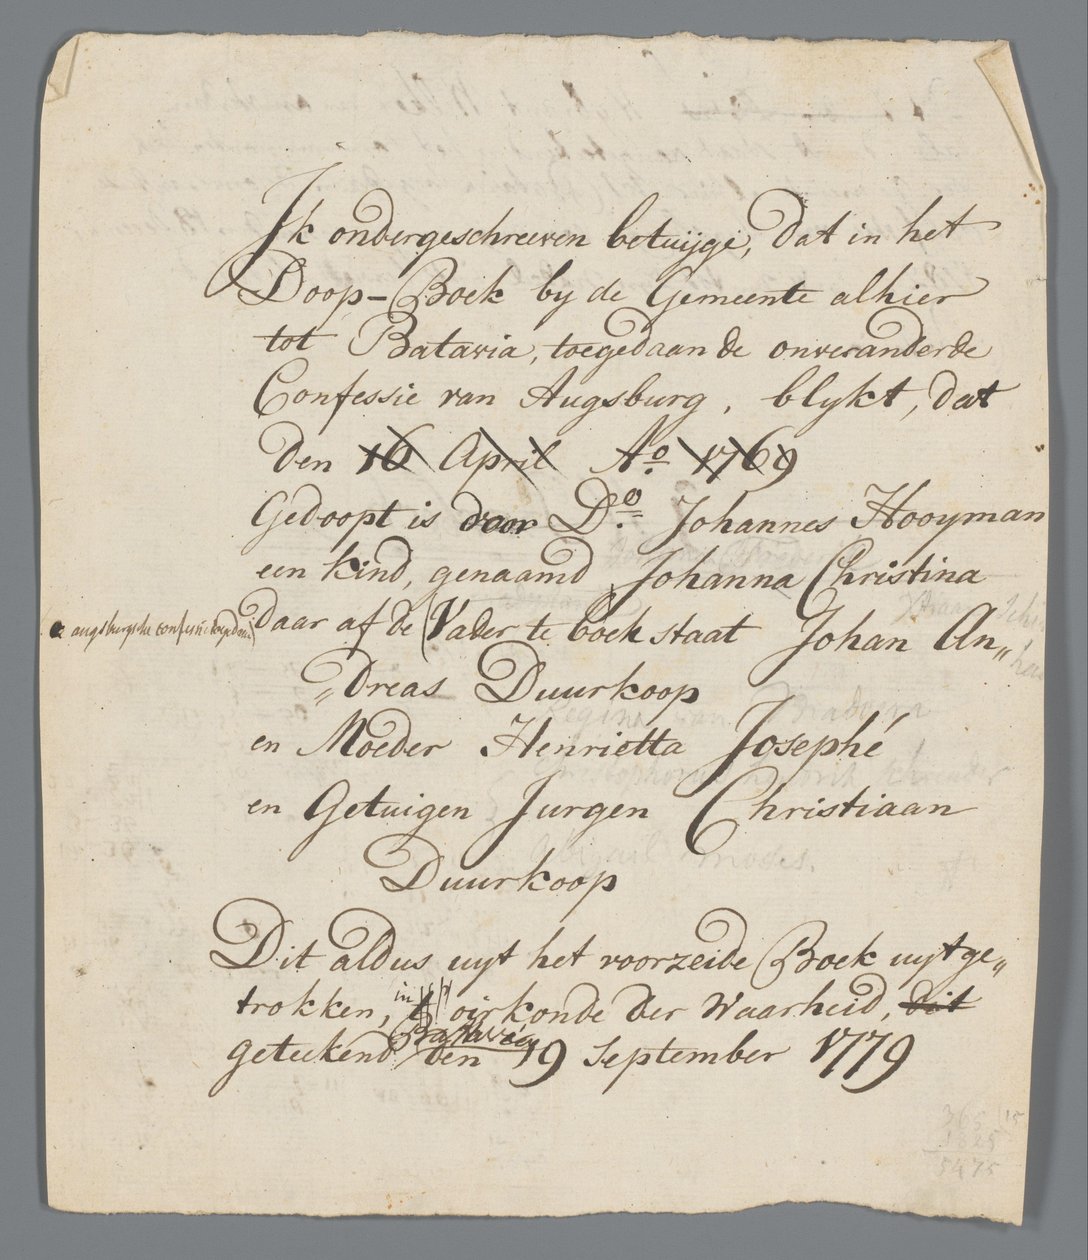 Ik ondergeschreeven betuijge, dat in het
Doop-Boek by de Gemeente alhier
tot Batavia, toegedaan de onveranderde
Confessie van Augsburg, blykt, dat
den 16 April Aº. 1769
Gedoopt is door Dº. Johannes Hooyman
een kind, genaamd Johanna Christina
daar af de Vader te boek staat Johan An„
„dreas Duurkoop
en Moeder Henrietta Josephé
en Getuigen Jurgen Christiaan
Duurkoop
Dit aldus uyt het voorzeide Boek uytge„
trokken, in oirkonde der Waarheid, dit
geteekend Batavia den 19 September 1779
augsburgsche
Regina van
Abigail Moses.
365 15
1825
5475